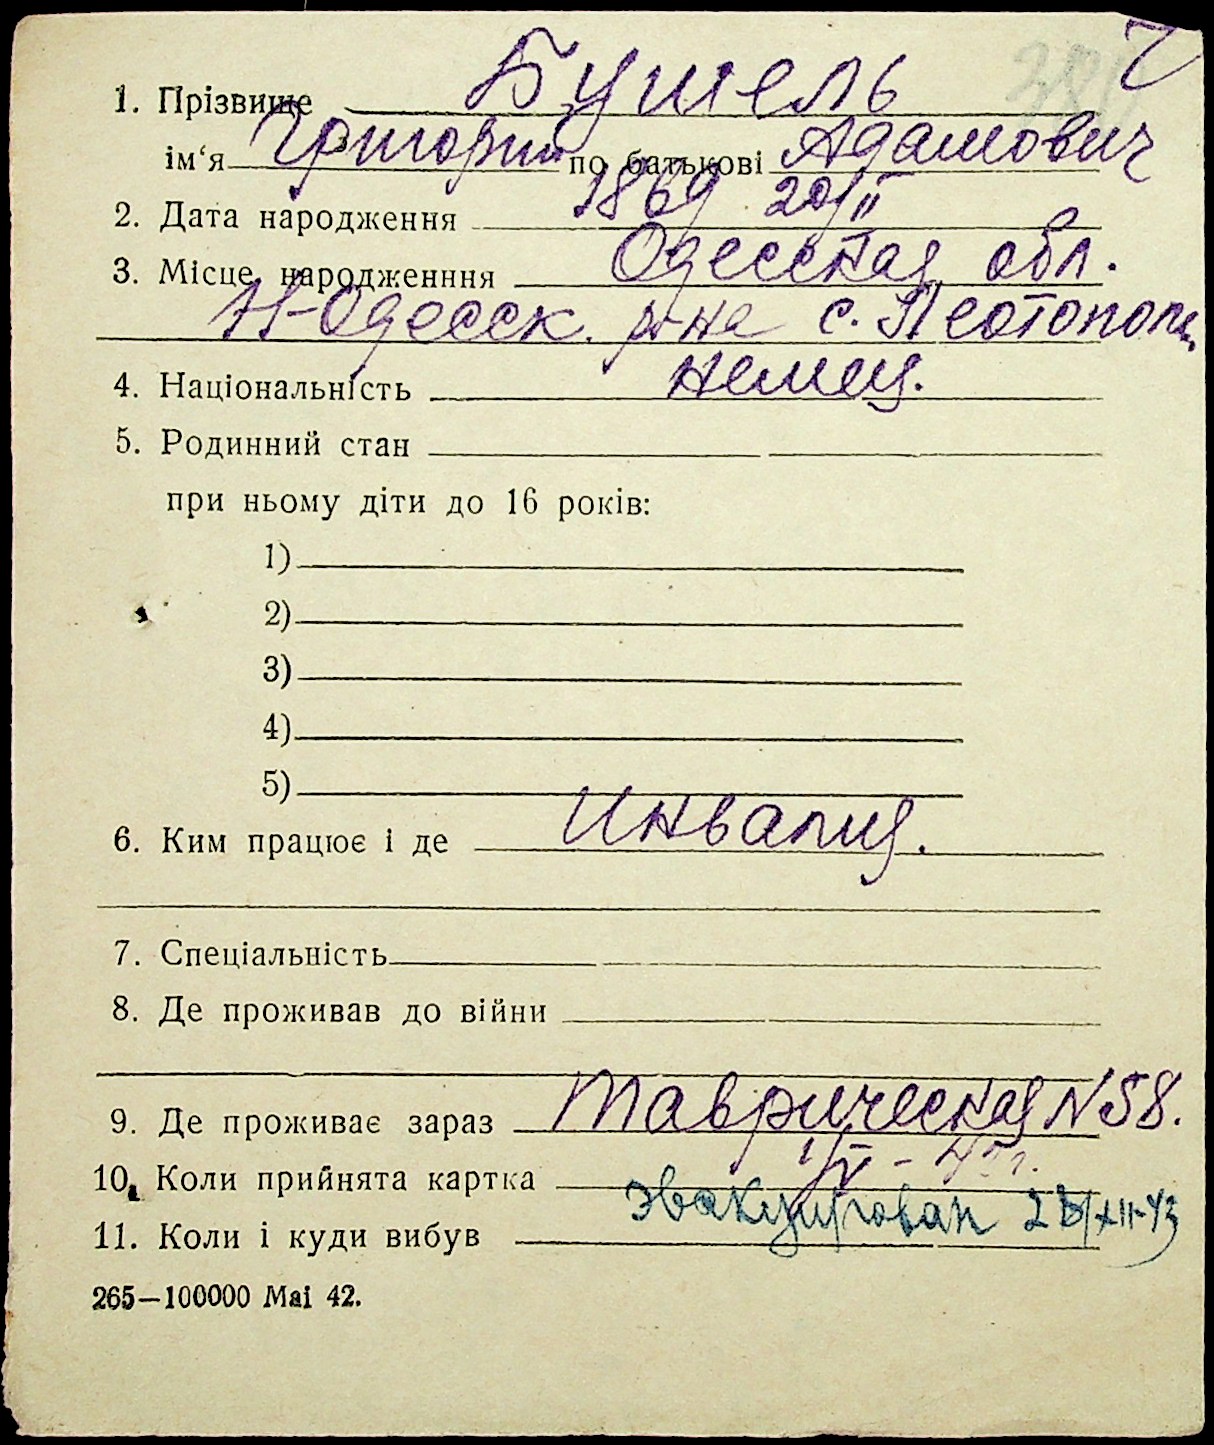 1. Прізвище Бушель
ім‘я Григорий по батькові Адамович
2. Дата народження 1869 20/II
3. Місце народженння Одесская обл.
Н-Одесск. р-на с.
4. Національність немец.
5. Родинний стан
при ньому діти до 16 років:
1)
2)
3)
4)
5)
6. Ким працює і де Инвалид.
7. Спеціальність
8. Де проживав до війни
9. Де проживає зараз Таврическая N 58.
10. Коли прийнята картка
11. Коли і куди вибув эвакуирован
265—100000 Mai 42.